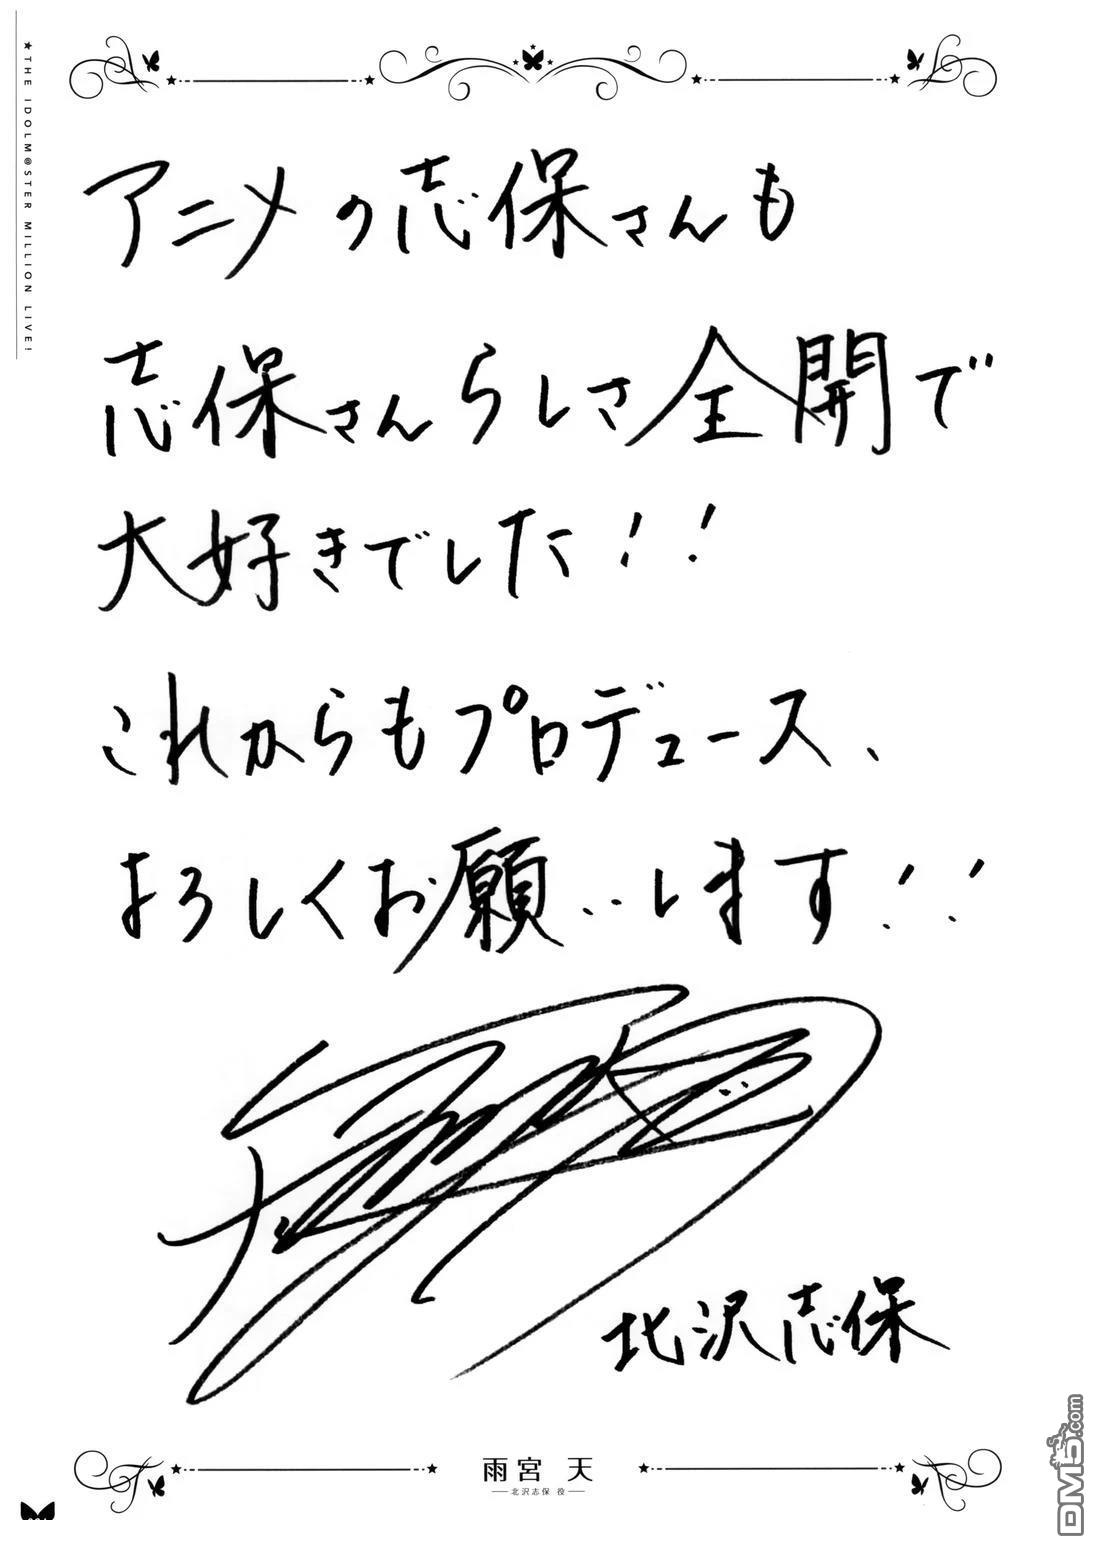 ★THE IDOLM@STER MILLION LIVE!
アニメの志保さんも
志保さんらしさ全開で
大好きでした!!
これからもプロデュース、
よろしくお願いします!!
北沢志保
雨宮 天
北沢志保 役
DM5.com